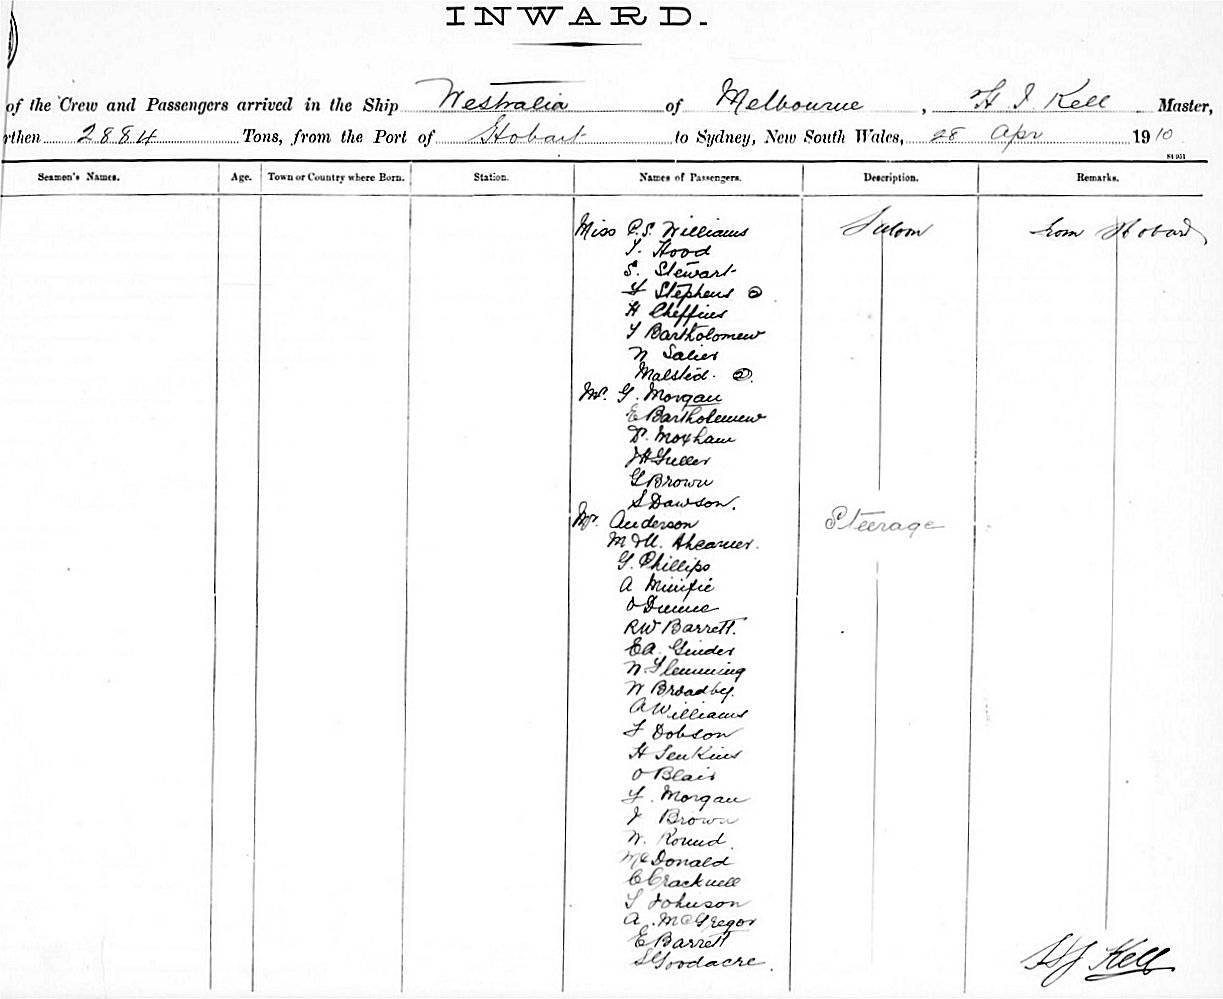 INWARD.
of the Crew and Passengers arrived in the Ship Westralia of Melbourne, H J Kell Master,
rthen 2884 Tons, from the Port of Hobart to Sydney, New South Wales, 28 Apr 1910
Seamen's Names. Age. Town or Country where Born. Station. Names of Passengers. Description. Remarks.
Miss P.S. Williams Saloon from Hobart
Hood
S. Stewart
Stephens
H Cheffins
Bartholomew
N Salier
Malsted. 2
Mr. G. Morgan
E Bartholemew
Dr. Moxham
G Brown
S Dawson.
Mr. Anderson Steerage
G. Phillips
A Minifie
RW Barrett.
EA. Ginder
N. Flemming
W Broadby.
A Williams
F Dobson
H Jenkins
O Blair
Morgan
J Brown
W. Round.
McDonald
C Cracknell
Johnson
A. McGregor
E Barrett
S Goodacre.
H J Kell